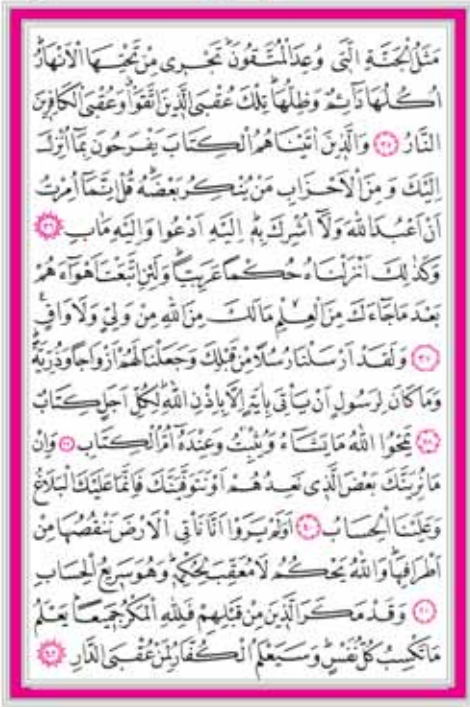 مَثَلُ الْجَنَّةِ الَّتِى وُعِدَ الْمُتَّقُونَ تَجْرِى مِنْ تَحْتِهَا الْاَنْهَارُ
اُكُلُهَا دَٓائِمٌ وَظِلُّهَا تِلْكَ عُقْبَى الَّذِينَ اتَّقَوْا وَعُقْبَى الْكَافِرِينَ
النَّارُ ﴿٣٥﴾ وَالَّذِينَ اٰتَيْنَاهُمُ الْكِتَابَ يَفْرَحُونَ بِمَٓا اُنْزِلَ
اِلَيْكَ وَمِنَ الْاَحْزَابِ مَنْ يُنْكِرُ بَعْضَهُ قُلْ اِنَّمَٓا اُمِرْتُ
اَنْ اَعْبُدَ اللّٰهَ وَلَٓا اُشْرِكَ بِهِ اِلَيْهِ اَدْعُوا وَاِلَيْهِ مَاٰبِ ﴿٣٦﴾
وَكَذٰلِكَ اَنْزَلْنَاهُ حُكْمًا عَرَبِيًّا وَلَئِنِ اتَّبَعْتَ اَهْوَٓاءَهُمْ
بَعْدَ مَا جَٓاءَكَ مِنَ الْعِلْمِ مَا لَكَ مِنَ اللّٰهِ مِنْ وَلِىٍّ وَلَا وَاقٍ
﴿٣٧﴾ وَلَقَدْ اَرْسَلْنَا رُسُلًا مِنْ قَبْلِكَ وَجَعَلْنَا لَهُمْ اَزْوَاجًا وَذُرِّيَّةً
وَمَا كَانَ لِرَسُولٍ اَنْ يَأْتِىَ بِاٰيَةٍ اِلَّا بِاِذْنِ اللّٰهِ لِكُلِّ اَجَلٍ كِتَابٌ
﴿٣٨﴾ يَمْحُوا اللّٰهُ مَا يَشَٓاءُ وَيُثْبِتُ وَعِنْدَهُٓ اُمُّ الْكِتَابِ ﴿٣٩﴾ وَاِنْ
مَا نُرِيَنَّكَ بَعْضَ الَّذِى نَعِدُهُمْ اَوْ نَتَوَفَّيَنَّكَ فَاِنَّمَا عَلَيْكَ الْبَلَاغُ
وَعَلَيْنَا الْحِسَابُ ﴿٤٠﴾ اَوَلَمْ يَرَوْا اَنَّا نَأْتِى الْاَرْضَ نَنْقُصُهَا مِنْ
اَطْرَافِهَا وَاللّٰهُ يَحْكُمُ لَا مُعَقِّبَ لِحُكْمِهِ وَهُوَ سَرِيعُ الْحِسَابِ
﴿٤١﴾ وَقَدْ مَكَرَ الَّذِينَ مِنْ قَبْلِهِمْ فَلِلّٰهِ الْمَكْرُ جَمِيعًا يَعْلَمُ
مَا تَكْسِبُ كُلُّ نَفْسٍ وَسَيَعْلَمُ الْكُفَّارُ لِمَنْ عُقْبَى الدَّارِ ﴿٤٢﴾